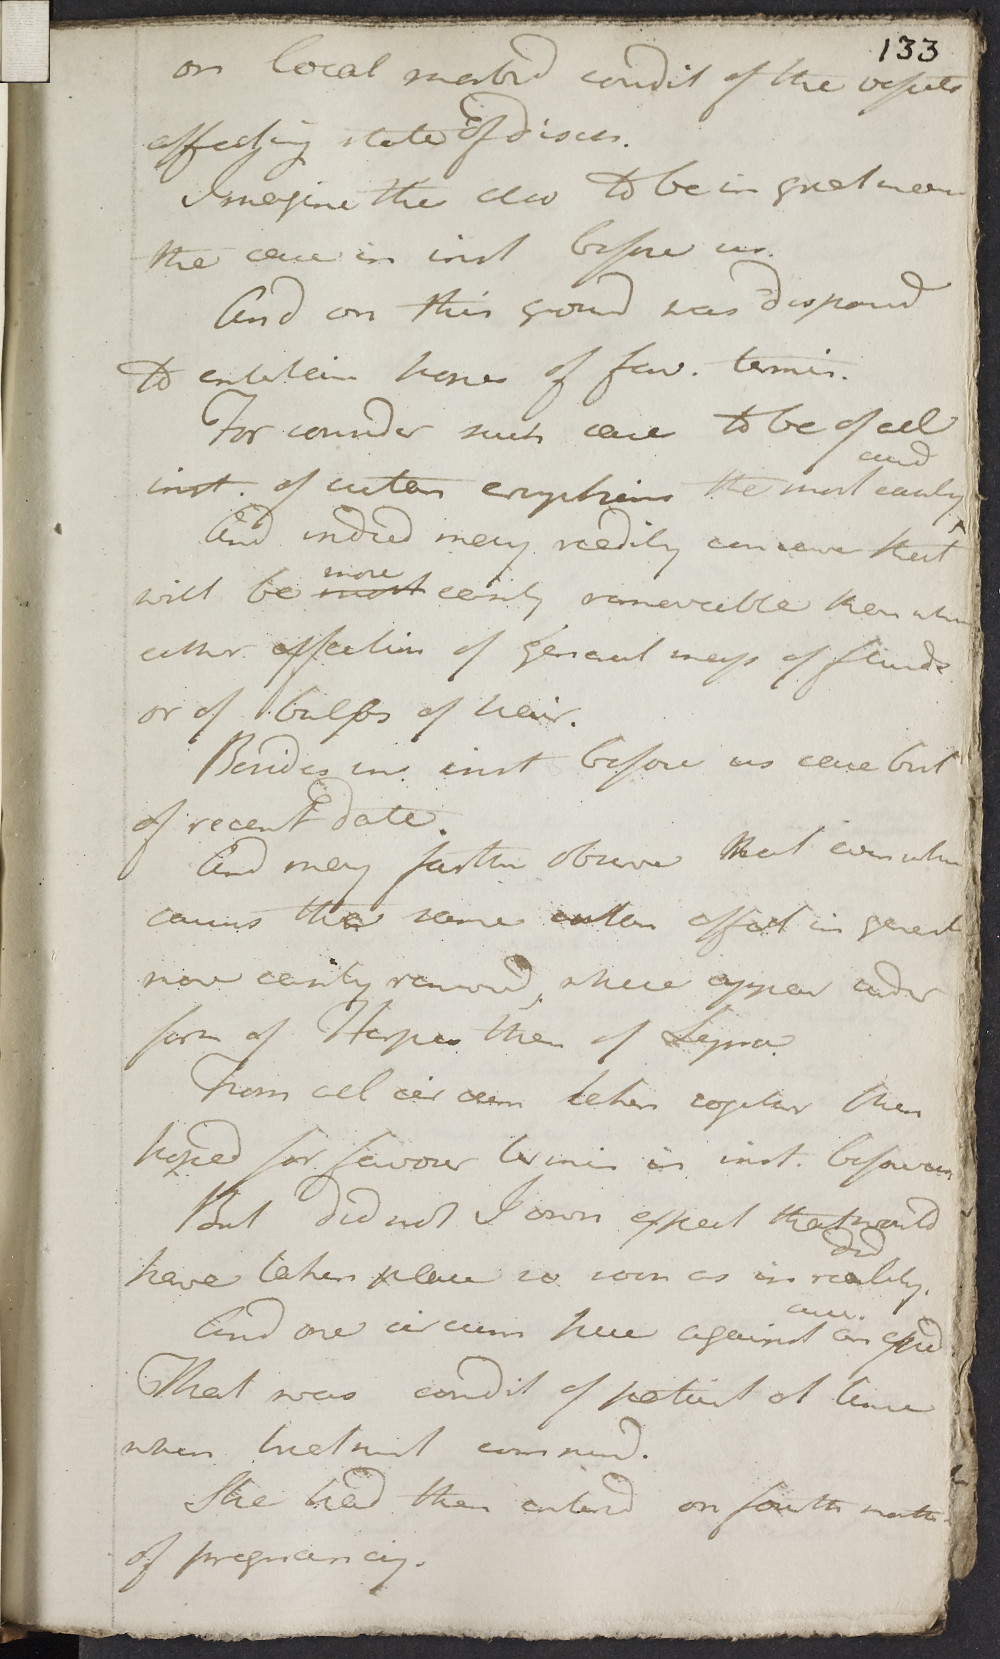 133
on local morbid condit of the vessels
affecting state of disease.
Imagine this also to be in great meas
the case in inst before us.
And on this ground was disposed
to entertain hopes of fav. termin.
For consider such case to be of all
inst. of cutan eruptions the most easily
and
And indeed may readily conceive that
will be more most easily removeable than when
either affection of general mass of fluids
or of bulbs of hair.
Besides in inst before us case but
of recent date.
And may farther observe that even when
causes the same cutan affect in general
more easily removed, where appear under
form of Herpes than of Lepra.
From all circum taken together then
hoped for favour termin in inst. before us
But did not I own expect that would
did
have taken place so soon as in reality.
And one circum here against
That was condit of patient at time
when treatment commencd.
She had then enterd on fourth month
of pregnancy.